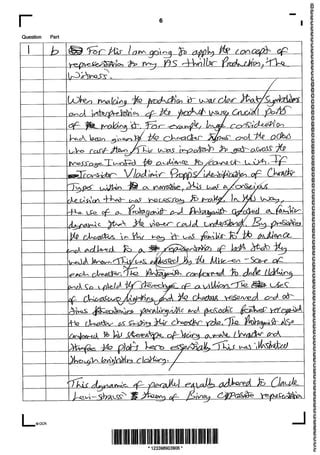 6
Question Part
1 b For this I am going to apply the concept of
representation to my AS thriller Production, 'The
Witness'.
When making the production it was clear that symbolism
and interpretation of the product were crucial parts
of making it. For example, huge consideration
had been given to the character types and the actors
who cast them. This was important to get across the
message I wanted the audience to connect with. If
I consider Vladimir Propps identification of Character
Types within a narrative, this was a conscious
decision that was necessary to make. In this way,
the use of a Protagonist and Antagonist created a familiar
dynamic that the viewer could understand. By presenting
the characters in this way it was familiar to the audience
and adhered to a representation of both that they
would know. This was addressed by the Mise-en-Scene of
each character. The Antagonist conformed to dark clothing
and so upheld the stereotype of a villian. The uses
of chiaroscuro lighting and the characters reserved and at
times paralinguistic and prosodic features
the character as his character role. The Protagonist also
conformed to his stereotype of being a male character and
therefore the plot's hero essentially. This was illustrated
though brighter clothing.
This dynamic of parallel equally adhered to Claude
Levi-Strauss' theory of Binary opposite representation
OCR
*1233980908*